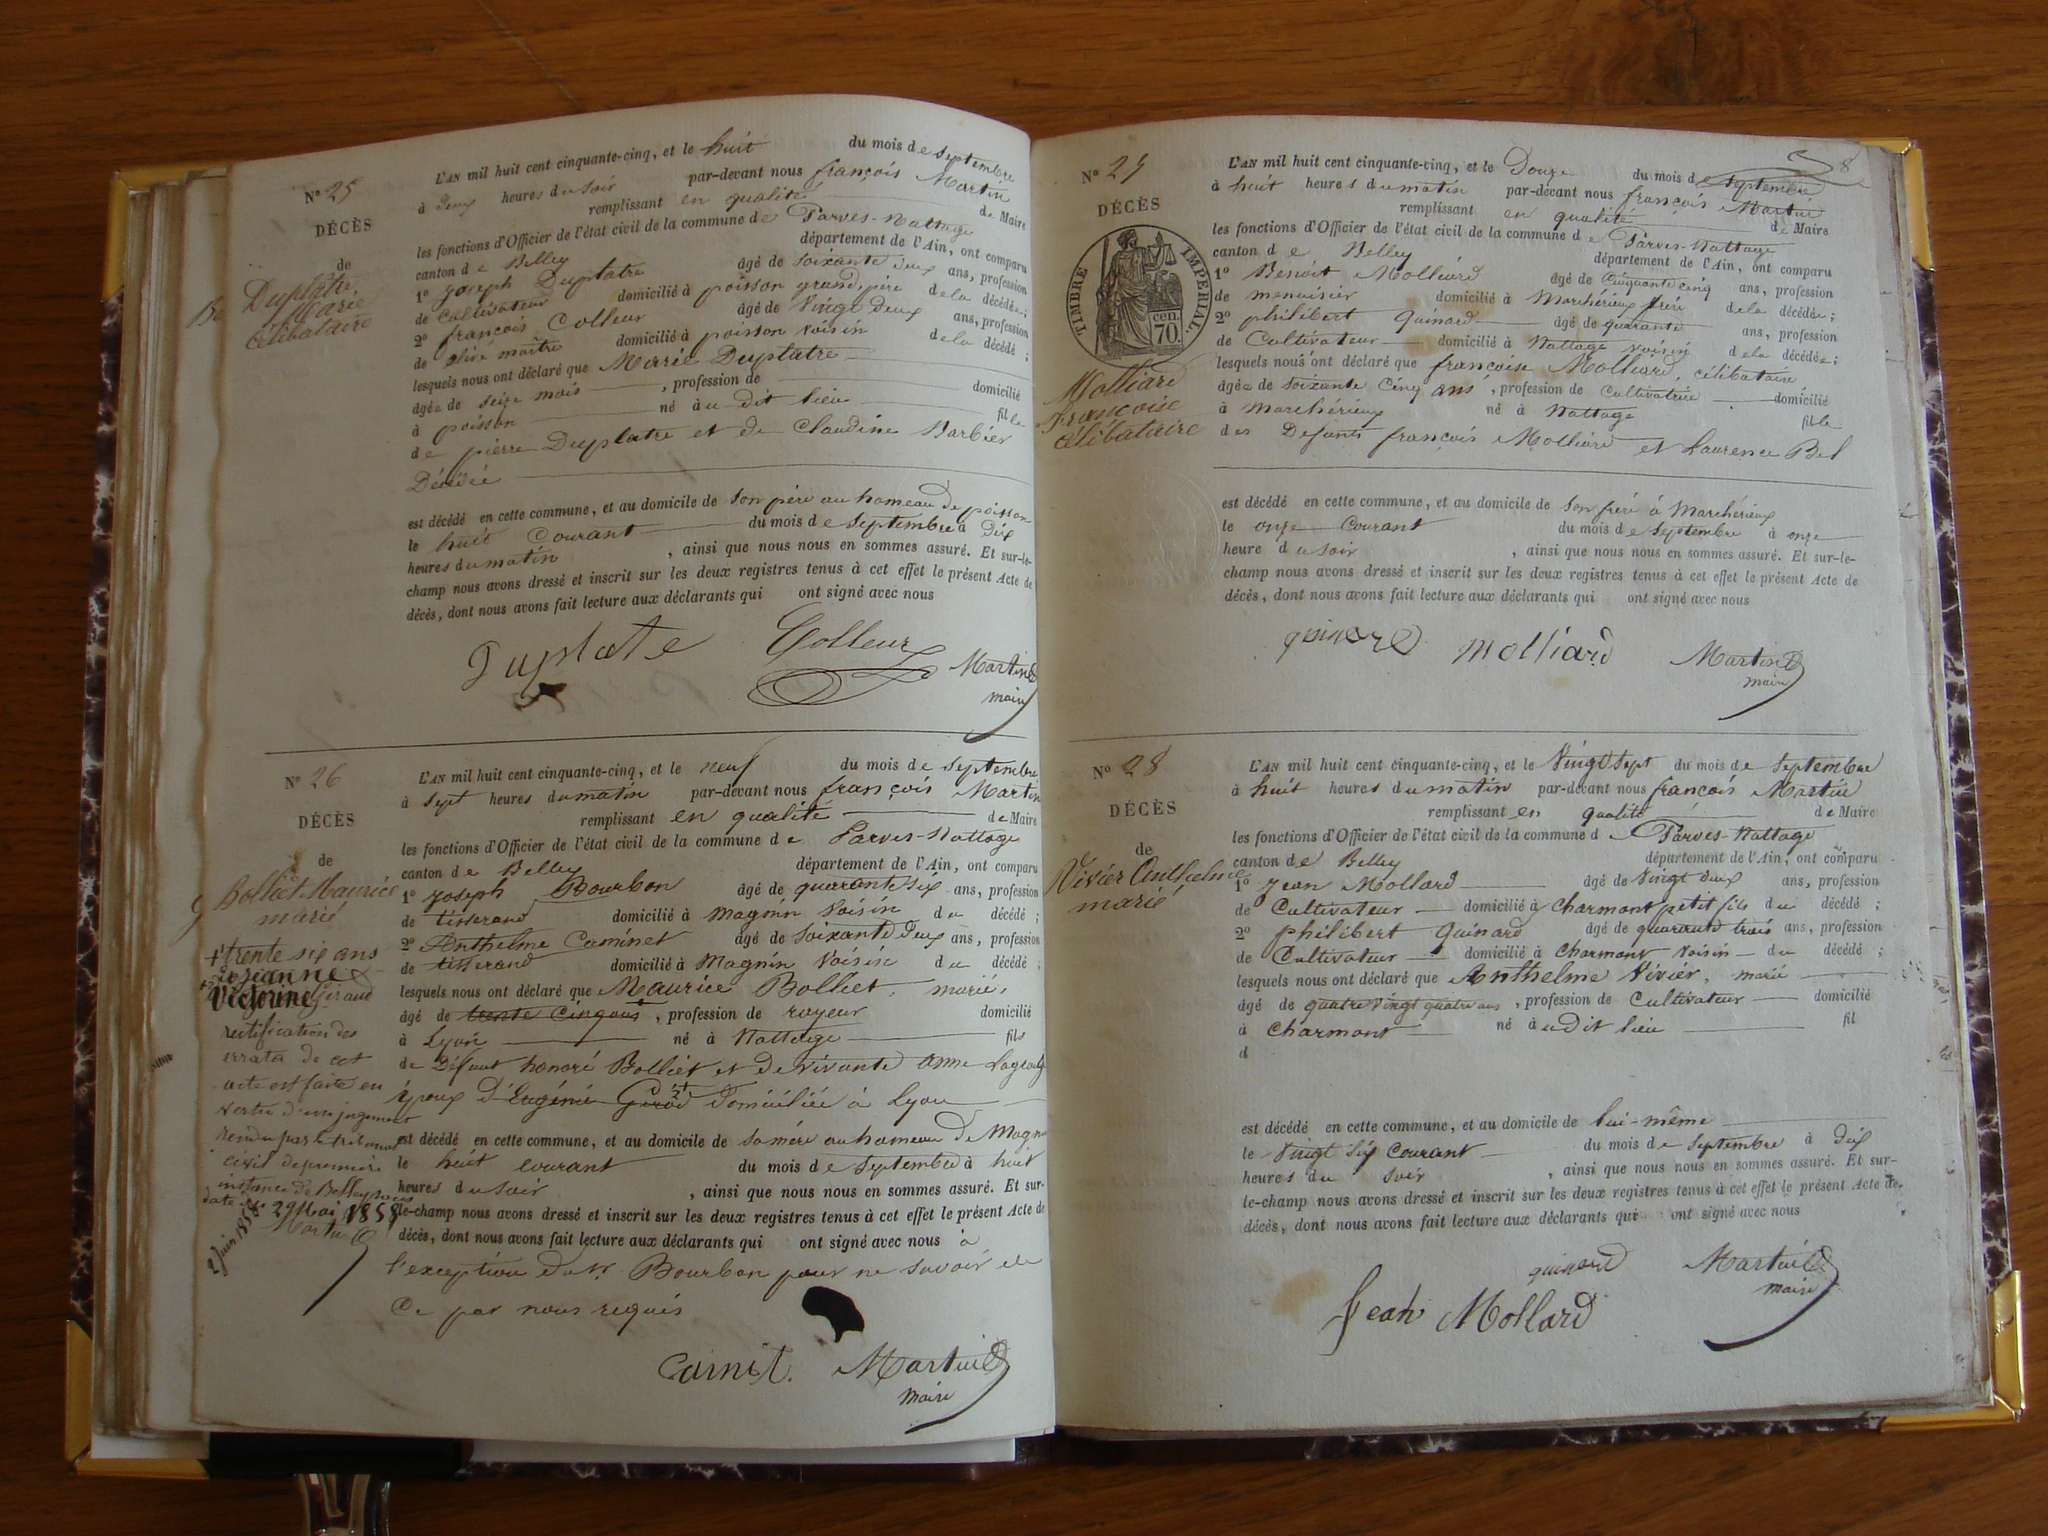 N° 25
DÉCÈS
de
Duplatre
Marie
célibataire
L'AN mil huit cent cinquante-cinq, et le huit du mois de septembre
à deux heures du soir par-devant nous françois Martin
remplissant en qualité de Maire
les fonctions d'Officier de l'état civil de la commune de Parves-Nattage
canton de Belley département de l'Ain, ont comparu
1° Joseph Duplatre âgé de soixante deux ans, profession
de Cultivateur domicilié à poisson grand père de la décédée;
2° françois Colleur âgé de vingt deux ans, profession
de domicilié à poisson voisin de la décédé;
lesquels nous ont déclaré que Marie Duplatre
âgée de seize mois, profession de domicilié
à poisson né au dit lieu fille
de pierre Duplatre et de Claudine Barbier
Décédée
est décédé en cette commune, et au domicile de son père au hameau de poisson
le huit Courant du mois de septembre à dix
heures du matin, ainsi que nous nous en sommes assuré. Et sur-le-
champ nous avons dressé et inscrit sur les deux registres tenus à cet effet le présent Acte de
décès, dont nous avons fait lecture aux déclarants qui ont signé avec nous
Duplate Colleur Martin
maire
N° 26
DÉCÈS
de
Bolliet Maurice
marié
+ trente six ans
Jeanne
Victorine Giraud
rectification des
errata de cet
acte est faite en
vertu d'un jugement
rendu par le tribunal
civil de première
instance de Belley sous
date du 29 Mai 1858
Martin
2 juin 1858
L'AN mil huit cent cinquante-cinq, et le neuf du mois de septembre
à sept heures du matin par-devant nous françois Martin
remplissant en qualité de Maire
les fonctions d'Officier de l'état civil de la commune de Parves-Nattage
canton de Belley département de l'Ain, ont comparu
1° Joseph Bourbon âgé de quarante six ans, profession
de tisserand domicilié à Magnin voisin du décédé;
2° Anthelme Caminet âgé de soixante deux ans, profession
de tisserand domicilié à Magnin voisin du décédé;
lesquels nous ont déclaré que Maurice Bolliet, marié,
âgé de trente cinq ans, profession de domicilié
à Lyon né à Nattage fils
de Défunt honoré Bolliet et de vivante anne
époux d'Eugénie Girod domiciliée à Lyon
est décédé en cette commune, et au domicile de sa mère au hameau de Magnin
le huit courant du mois de septembre à huit
heures du soir, ainsi que nous nous en sommes assuré. Et sur-
le-champ nous avons dressé et inscrit sur les deux registres tenus à cet effet le présent Acte de
décès, dont nous avons fait lecture aux déclarants qui ont signé avec nous à
l'exception du Sr Bourbon pour ne savoir de
Ce par nous requis
Martin
maire
8
N° 27
DÉCÈS
TIMBRE IMPÉRIAL.
70 cen.
Molliard
Françoise
célibataire
L'AN mil huit cent cinquante-cinq, et le Douze du mois de septembre
à huit heures du matin par-devant nous françois Martin
remplissant en qualité de Maire
les fonctions d'Officier de l'état civil de la commune de Parves-Nattage
canton de Belley département de l'Ain, ont comparu
1° Benoit Molliard âgé de Cinquante cinq ans, profession
de menuisier domicilié à Marchérieux frère de la décédée;
2° philibert Quinard âgé de quarante ans, profession
de Cultivateur domicilié à Nattage voisin de la décédée;
lesquels nous ont déclaré que françoise Molliard, célibataire
âgée de soixante cinq ans, profession de cultivatrice domicilié
à Marchérieux né à Nattage fille
des Defunts françois Molliard et Laurence Bel
est décédé en cette commune, et au domicile de son frère à Marchérieux
le onze Courant du mois de septembre à onze
heure du soir, ainsi que nous nous en sommes assuré. Et sur-le-
champ nous avons dressé et inscrit sur les deux registres tenus à cet effet le présent Acte de
décès, dont nous avons fait lecture aux déclarants qui ont signé avec nous
quinard molliard Martin
maire
N° 28
DÉCÈS
de
Vivier Anthelme
marié
L'AN mil huit cent cinquante-cinq, et le Vingt sept du mois de septembre
à huit heures du matin par-devant nous françois Martin
remplissant en qualité de Maire
les fonctions d'Officier de l'état civil de la commune de Parves-Nattage
canton de Belley département de l'Ain, ont comparu
1° Jean Mollard âgé de Vingt deux ans, profession
de Cultivateur domicilié à Charmont petit fils du décédé;
2° philibert Quinard âgé de quarante trois ans, profession
de Cultivateur domicilié à Charmont voisin du décédé;
lesquels nous ont déclaré que Anthelme Vivier, marié
âgé de quatre vingt quatre ans, profession de Cultivateur domicilié
à Charmont né au dit lieu fil
d
est décédé en cette commune, et au domicile de lui-même
le Vingt six Courant du mois de septembre à dix
heures du soir, ainsi que nous nous en sommes assuré. Et sur-
le-champ nous avons dressé et inscrit sur les deux registres tenus à cet effet le présent Acte de
décès, dont nous avons fait lecture aux déclarants qui ont signé avec nous
quinard Martin
maire
Jean Mollard